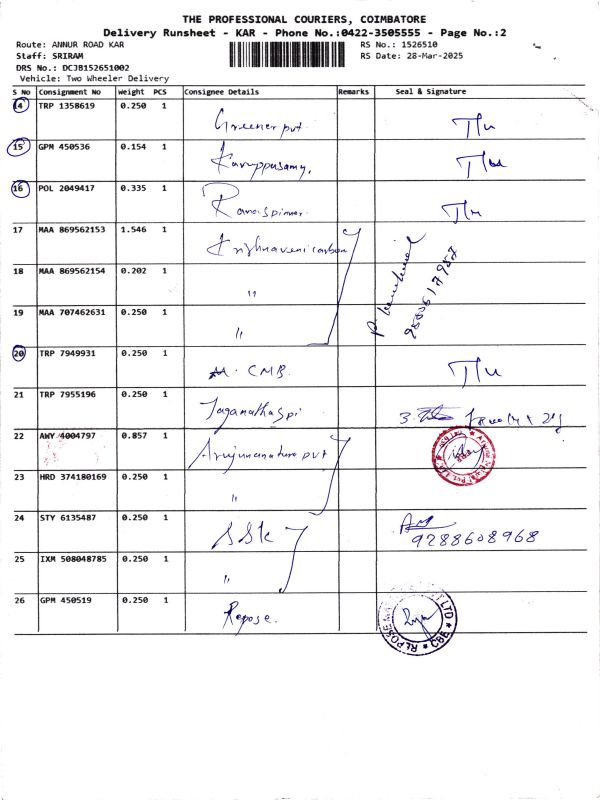 THE PROFESSIONAL COURIERS, COIMBATORE
Delivery Runsheet - KAR - Phone No.:0422-3505555 - Page No.:2
Route: ANNUR ROAD KAR RS No.: 1526510
Staff: SRIRAM RS Date: 28-Mar-2025
DRS No.: DCJB152651002
Vehicle: Two Wheeler Delivery
S No Consignment No Weight PCS Consignee Details Remarks Seal & Signature
14 TRP 1358619 0.250 1 Greener pvt
15 GPM 450536 0.154 1 Karuppusamy.
16 POL 2049417 0.335 1
17 MAA 869562153 1.546 1 Krishnaveni carbon
18 MAA 869562154 0.202 1 "
19 MAA 707462631 0.250 1 "
20 TRP 7949931 0.250 1 M. CMB.
21 TRP 7955196 0.250 1 Jaganatha
22 AWY 4004797 0.857 1 pvt
23 HRD 374180169 0.250 1 "
24 STY 6135487 0.250 1 SSK 9288608968
25 IXM 508048785 0.250 1 "
26 GPM 450519 0.250 1 Repose. REPOSE LTD CBE